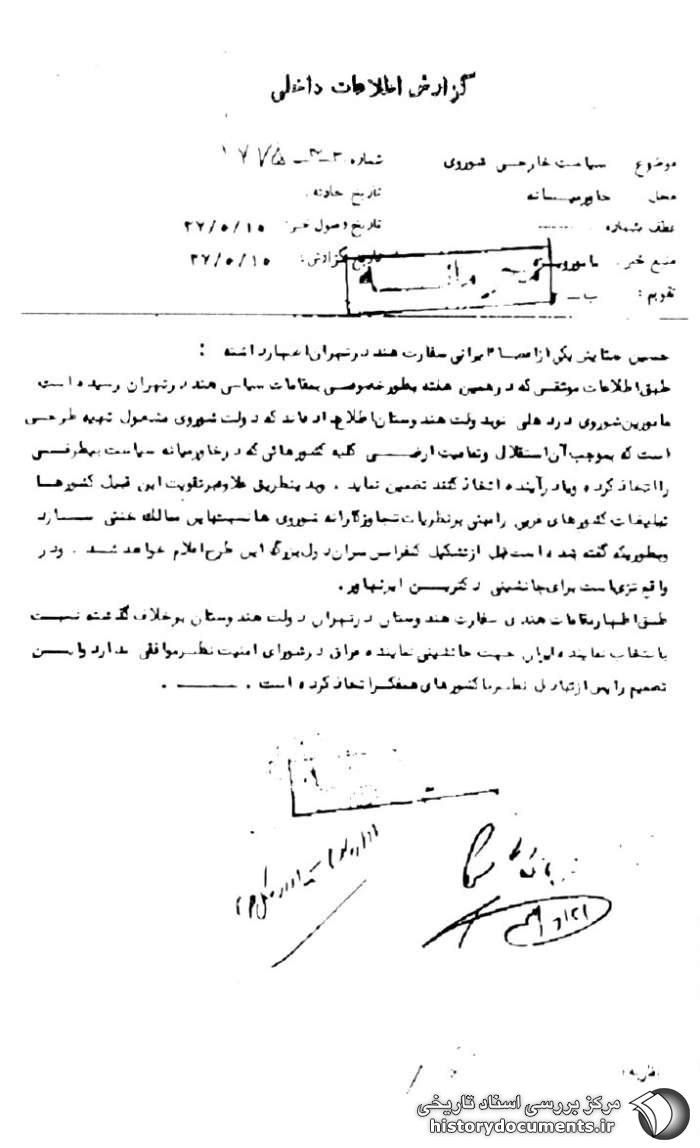 گزارش اطلاعات داخلی
موضوع سیاست خارجی شوروی شماره
محل خاورمیانه تاریخ حادثه
عطف بشماره تاریخ وصول خبر: ۳۷/۵/۱۵
منبع خبر. مامور تاریخ گزارش: ۳۷/۵/۱۵
تقویم: ب
حسین ستایش یکی از اعضاء ایرانی سفارت هند در تهران اظهار داشته :
طبق اطلاعات موثقی که در همین هفته بطور خصوصی بمقامات سیاسی هند در تهران رسیده است
مامورین شوروی در دهلی نو بدولت هندوستان اطلاع داده‌اند که دولت شوروی مشغول تهیه طرحی
است که بموجب آن استقلال و تمامیت ارضی کلیه کشورهائی که در خاورمیانه سیاست بیطرفی
را اتخاذ کرده و یا در آینده اتخاذ کنند تضمین نماید . و بدینطریق علاوه بر تقویت این قبیل کشورها
تبلیغات کشورهای غربی را مبنی بر نظریات تجاوزکارانه شوروی ها نسبت باین ممالک خنثی سازد
و بطوریکه گفته شده است قبل از تشکیل کنفرانس سران دول بزرگ این طرح اعلام خواهد شد . و در
واقع تزی است برای جانشینی دکترین ایزنهاور.
طبق اظهار مقامات هندی سفارت هندوستان در تهران دولت هندوستان برخلاف گذشته نسبت
بانتخاب نماینده ایران جهت جانشینی نماینده عراق در شورای امنیت نظر موافقی ندارد و این
تصمیم را پس از تبادل نظر با کشورهای همفکر اتخاذ کرده است .
مرکز بررسی اسناد تاریخی
historydocuments.ir